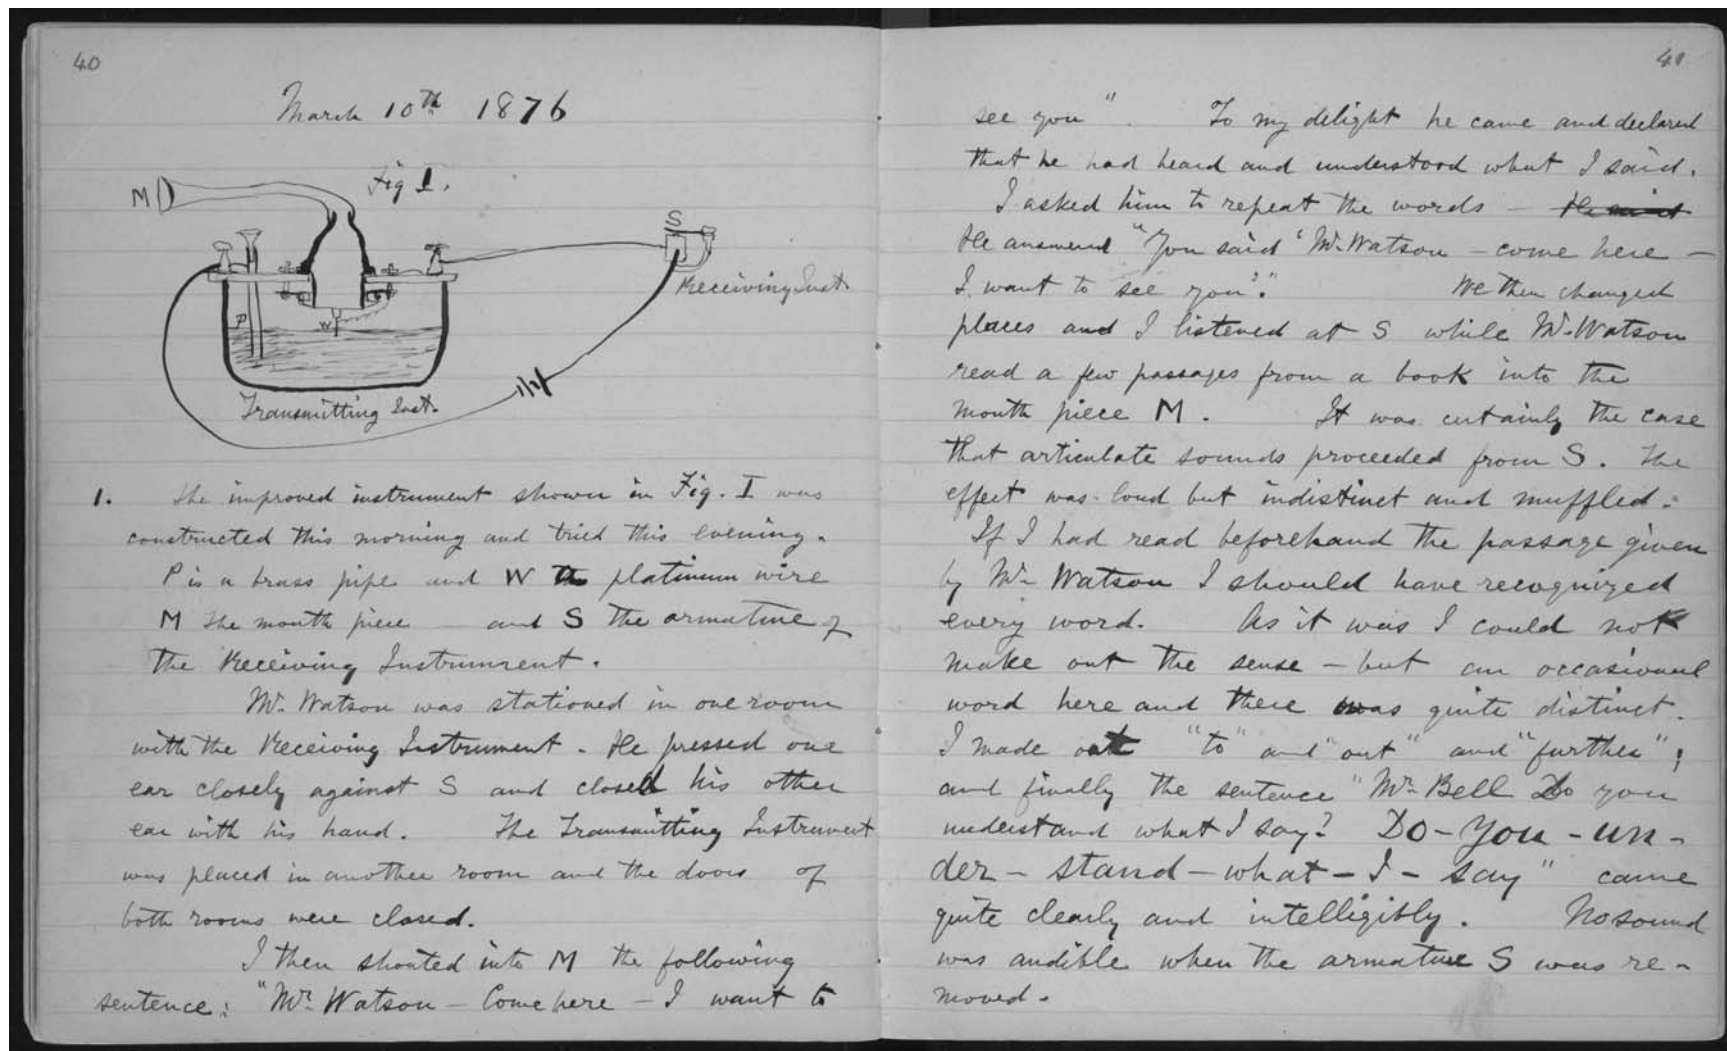 40
March 10th 1876
Fig 1.
M
S
Receiving Inst.
P
W
Transmitting Inst.
1. The improved instrument shown in Fig. I was
constructed this morning and tried this evening.
P is a brass pipe and W the platinum wire
M the mouth piece — and S the armature of
the Receiving Instrument.
Mr. Watson was stationed in one room
with the Receiving Instrument. He pressed one
ear closely against S and closed his other
ear with his hand. The Transmitting Instrument
was placed in another room and the doors of
both rooms were closed.
I then shouted into M the following
sentence: "Mr. Watson — Come here — I want to
41
see you". To my delight he came and declared
that he had heard and understood what I said.
I asked him to repeat the words —
He answered "You said 'Mr. Watson — come here —
I want to see you'." We then changed
places and I listened at S while Mr. Watson
read a few passages from a book into the
mouth piece M. It was certainly the case
that articulate sounds proceeded from S. The
effect was loud but indistinct and muffled.
If I had read beforehand the passage given
by Mr. Watson I should have recognized
every word. As it was I could not
make out the sense — but an occasional
word here and there was quite distinct.
I made out "to" and "out" and "further";
and finally the sentence "Mr. Bell Do you
understand what I say? Do — You — un —
der — stand — what — I — say" came
quite clearly and intelligibly. No sound
was audible when the armature S was re-
moved.